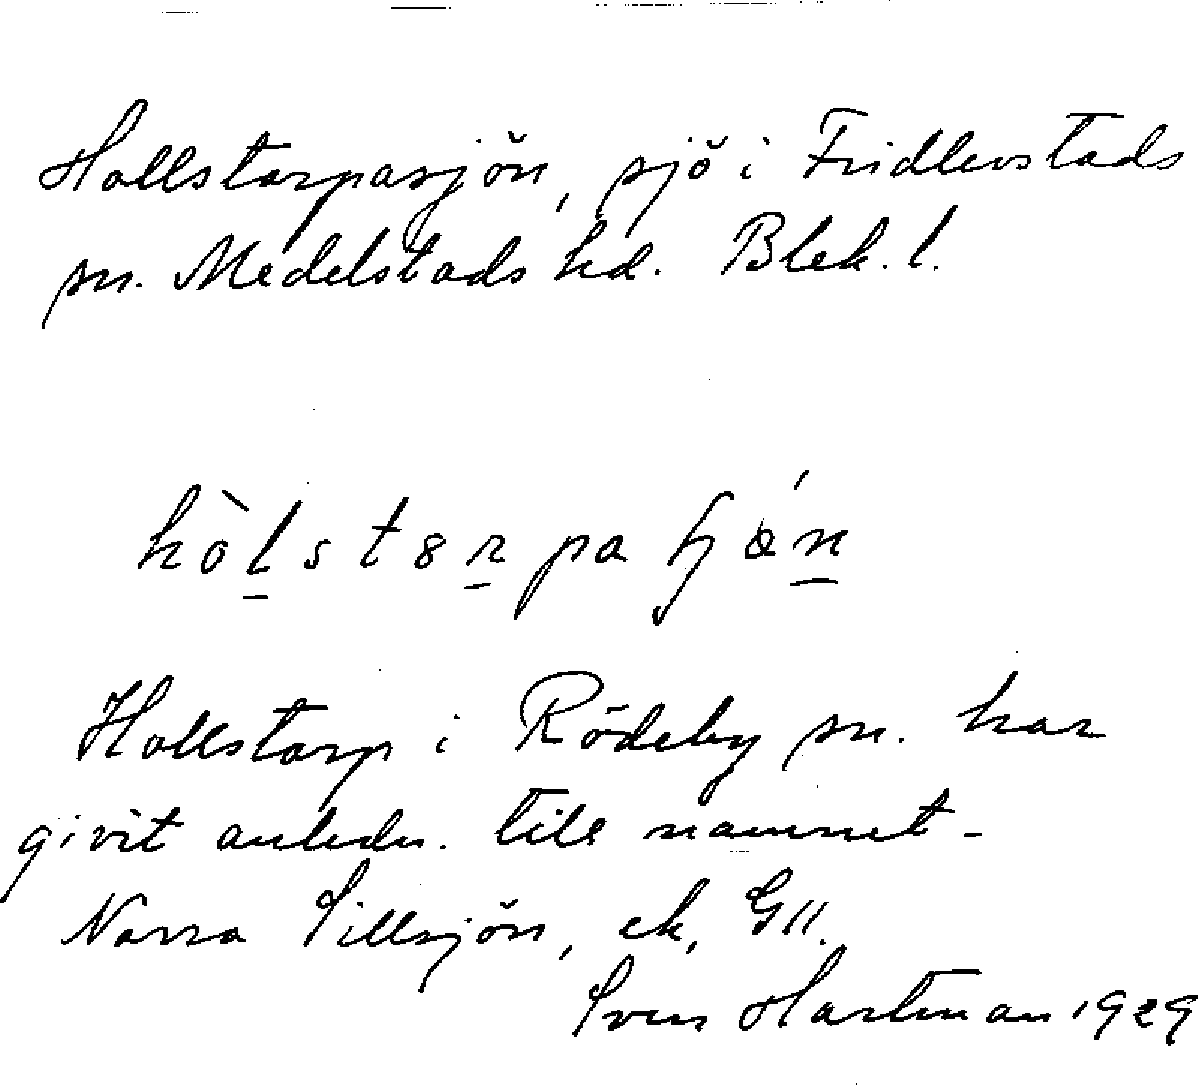 Hollstorpasjön, sjö i Fridlevstads
sn. Medelstads hd. Blek. l.
Hollstorp i Rödeby sn. har
givit anledn. till namnet -
Norra Sillsjön, ek, GII.
Sven Hartman 1929